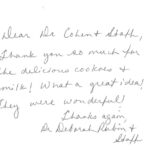 Dear Dr Cohen & Staff,
Thank you so much for
the delicious cookies &
milk! What a great idea!
They were wonderful!
Thanks again,
Dr Deborah Rubin &
Staff